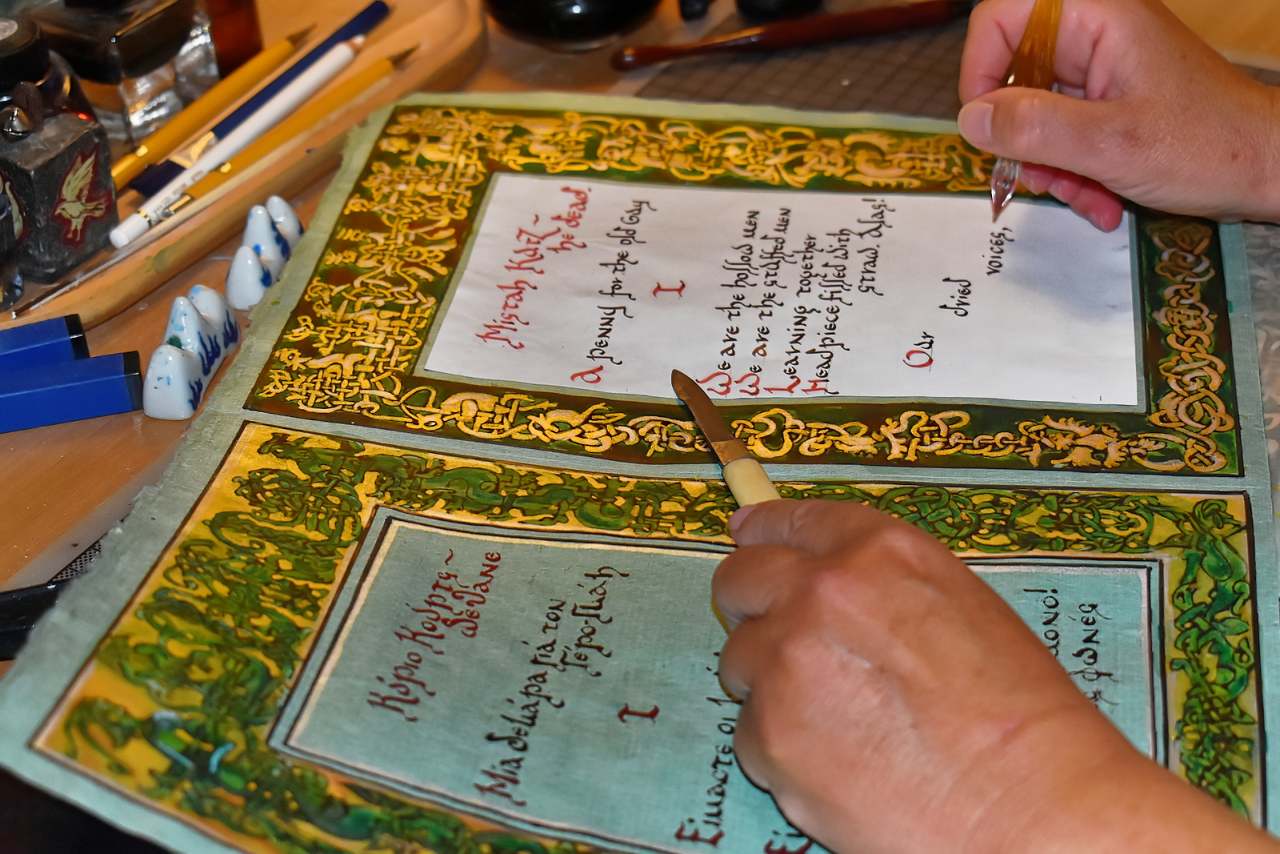 Mistah Kurtz ~
he dead.
A penny for the old Guy
I
We are the hollow men
We are the stuffed men
Learning together
Headpiece filled with
straw. Alas!
Our dried voices,
Κύριο Κούρτς ~
πέθανε
Μία δεκάρα γιά τον
Γέρο-Γκάη
I
Είμαστε οι
φωνές